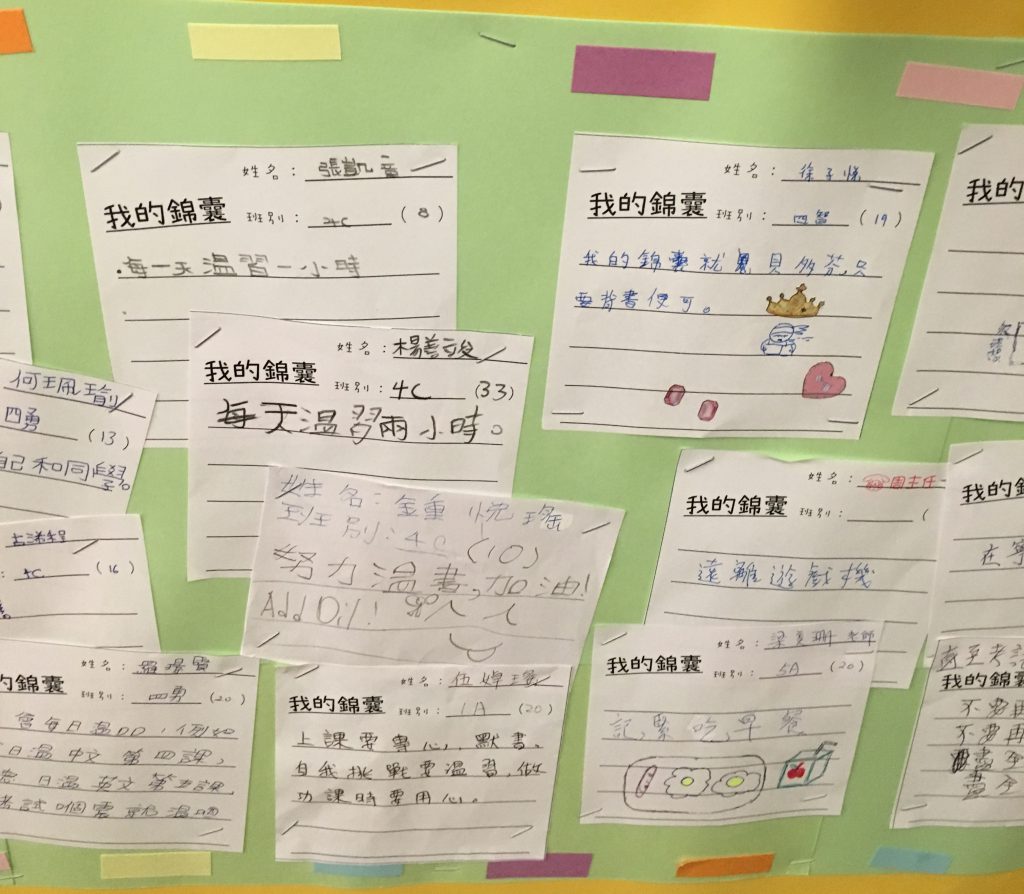 姓名：張凱音
我的錦囊 班別：4C (8)
每一天溫習一小時
姓名：徐子悅
我的錦囊 班別：四智 (19)
我的錦囊就是貝多芬,只
要背書便可。
姓名：楊善
我的錦囊 班別：4C (33)
每天溫習兩小時。
何珮瑜
四勇 (13)
自己和同學。
姓名：鍾悅瑤
班別：4C (10)
努力溫書,加油!
Add Oil!
姓名：周主任
我的錦囊 班別：
遠離遊戲機
4C (16)
姓名：羅
的錦囊 班別：四勇 (20)
會每日溫DD,例如
日溫中文第四課,
日溫英文第五課,
考試嗰
姓名：伍
我的錦囊 班別：1A (20)
上課要專心,默書。
自我挑戰要溫習,做
功課時要用心。
姓名：梁美珊老師
我的錦囊 班別：5A (20)
記緊吃早餐
我的
我的錦
在
我的錦囊
不要再
不要再